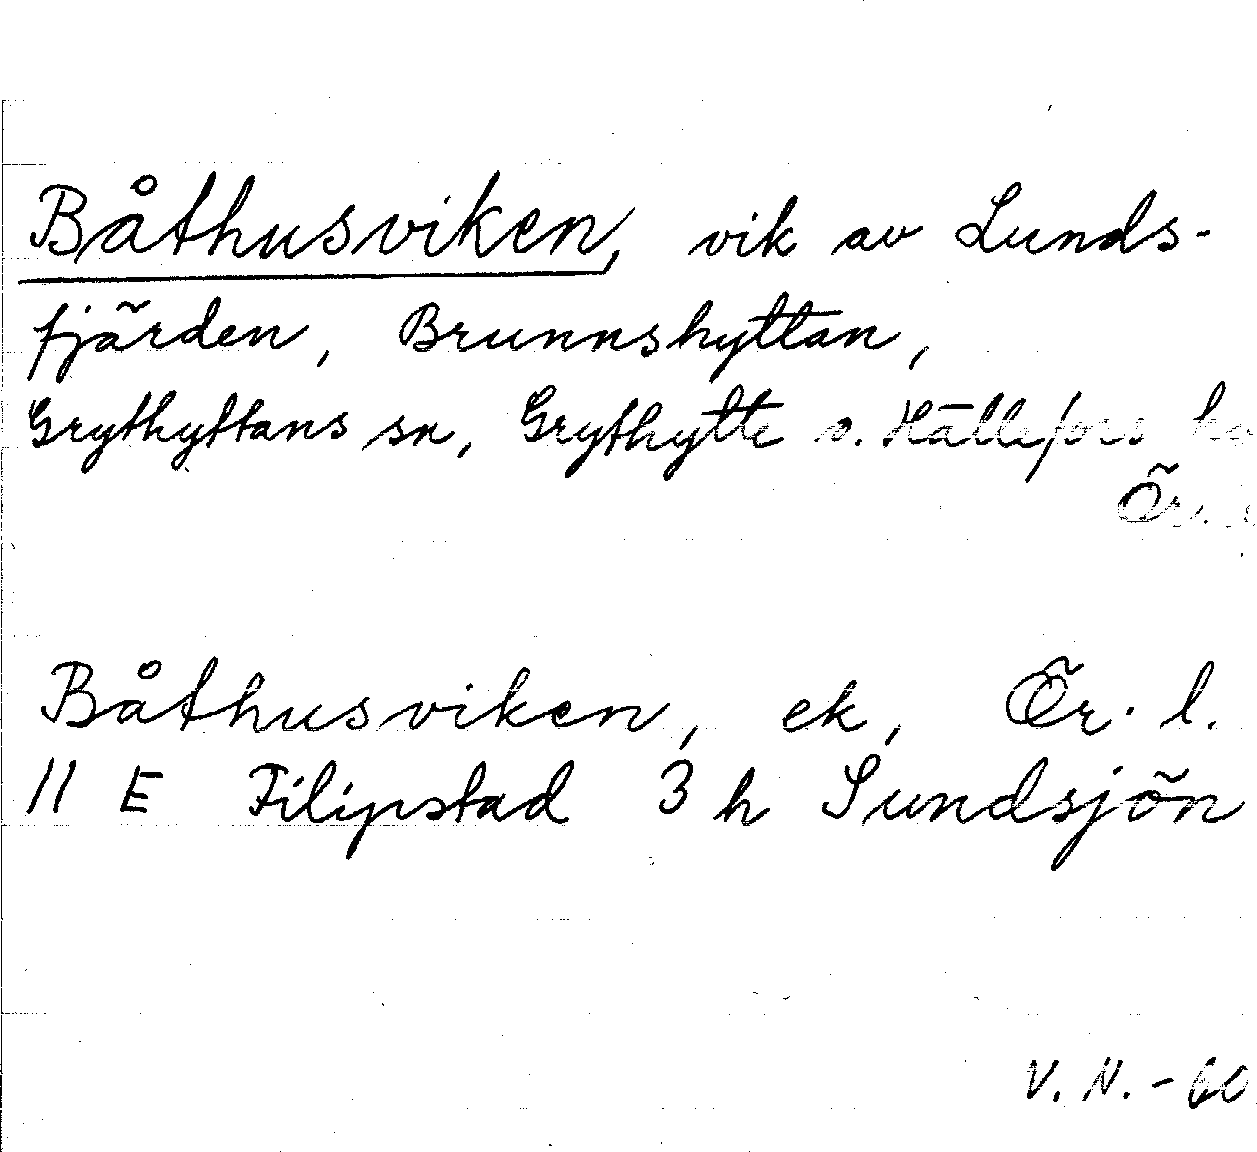 Båthusviken, vik av Lunds-
fjärden, Brunnshyttan,
Grythyttans sn, Grythytte o. Hällefors
Ör.
Båthusviken, ek, Ör. l.
11 E Filipstad 3 h Sundsjön
V. N. - 60